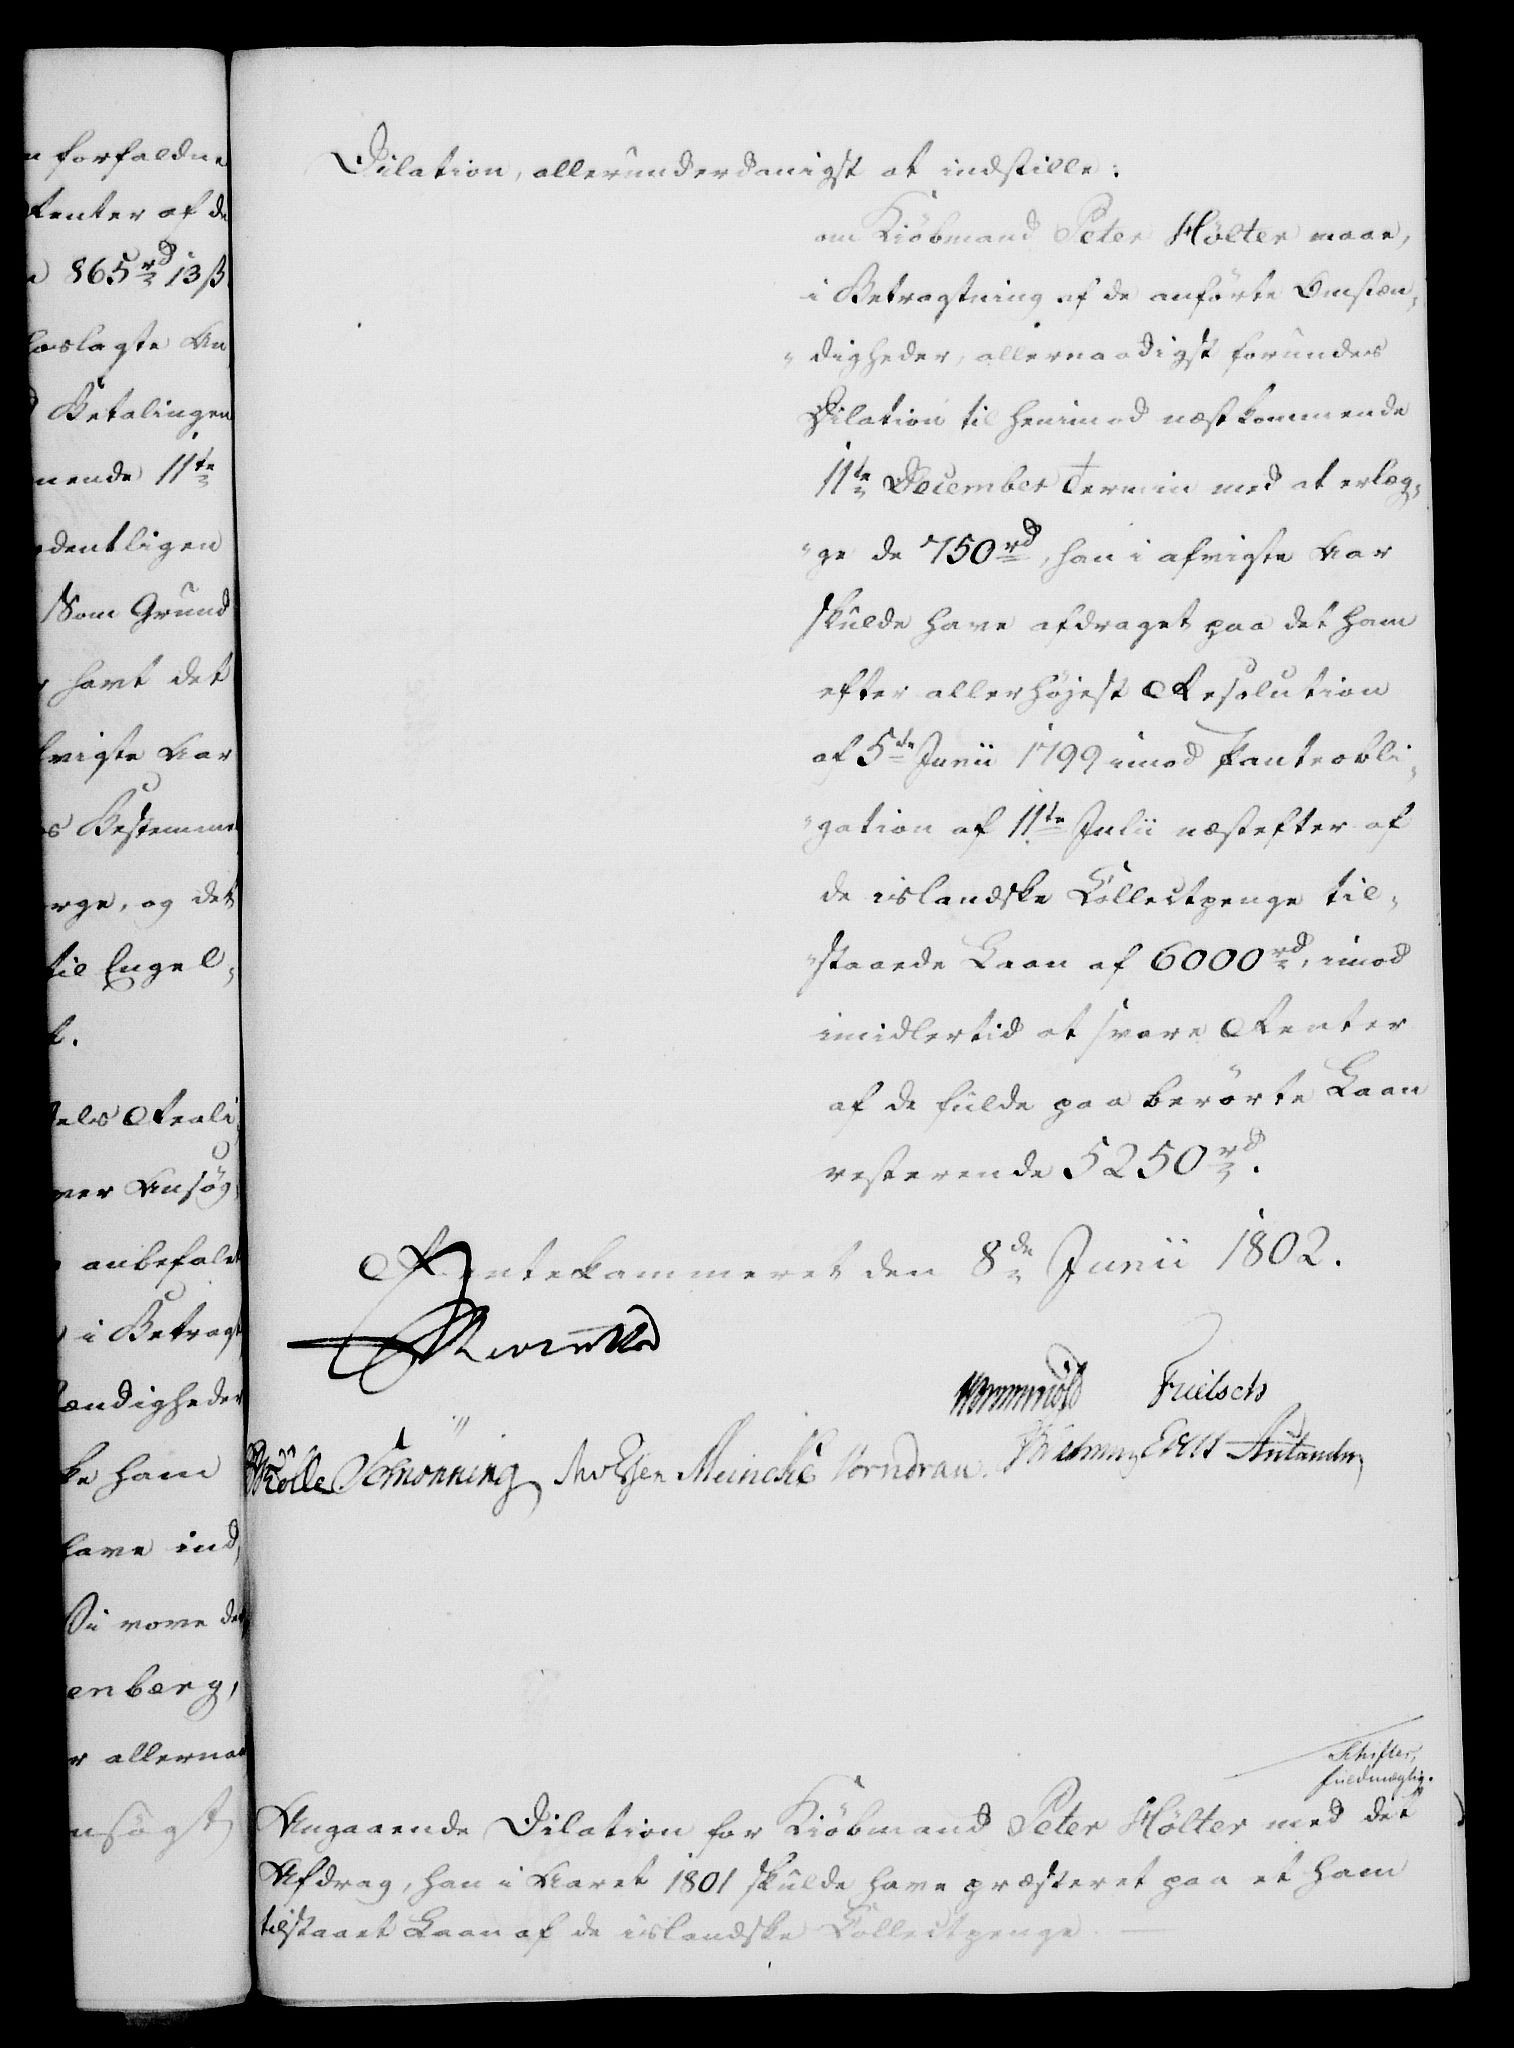 n forfaldne
Renter af de
865 rd 13 ß
loslagte An
Betalingen
mende 11te
dentligen
Som Grund
havt det
vigte Aar
Bestemme
rge, og det
til Engel-
t.
tels Reali
ver Ansøg
anbefalet
i Betragt
ændigheder
ke ham
lave ind
Vi vove de
enberg,
r allernaa
nsøgt
Dilation, allerunderdanigst at indstille:
om Kiöbmand Peter Hölter maae,
i Betragtning af de anførte Omstæn-
-digheder, allernaadigst forundes
Dilation til henimod næstkommende
11te December Termin med at erlæg-
-ge de 750 rd, han i afvigte Aar
skulde have afdraget paa det ham
efter allerhøjest Resolution
af 5te Junii 1799 imod Panteobli-
-gation af 11te Julii næstefter af
de islandske Collectpenge til-
-staaede Laan af 6000 rd, imod
imidlertid at svare Renter
af de fulde paa berørte Laan
resterende 5250 rd.
Rentekammeret den 8de Junii 1802.
Reventlow
Wormskiold Frielsch
Rølle Schønning Meincke Vorndran
Schifter,
fuldmægtig.
Angaaende Dilation for Kiöbmand Peter Hölter med det
Afdrag, han i Aaret 1801 skulde have præsteret paa et ham
tilstaaet Laan af de islandske Collectpenge. —